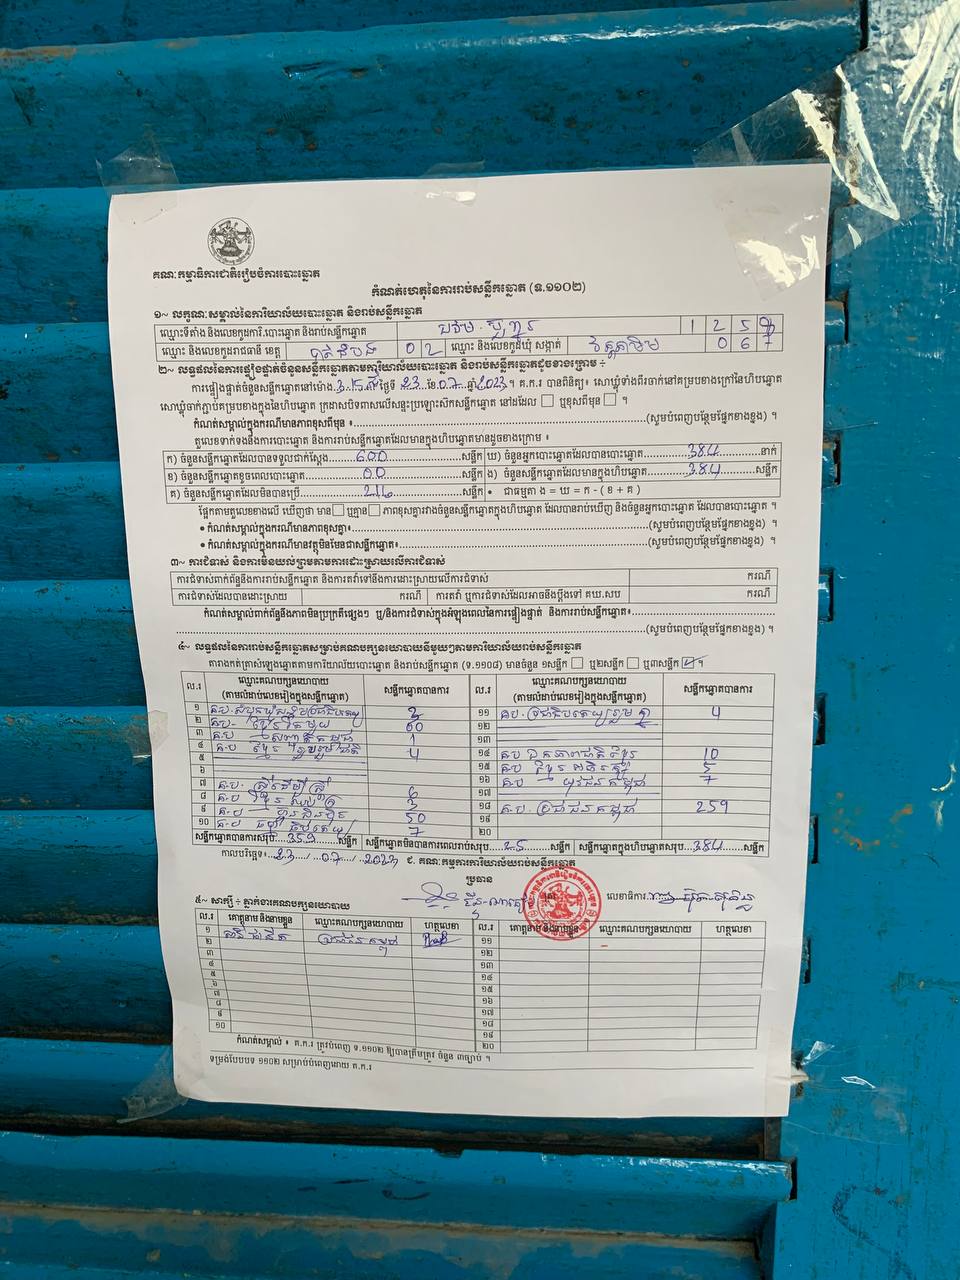 គណៈកម្មាធិការជាតិរៀបចំការបោះឆ្នោត
កំណត់ហេតុនៃការរាប់សន្លឹកឆ្នោត (ទ.១១០២)
១~ លក្ខណៈសម្គាល់នៃការិយាល័យបោះឆ្នោត និងរាប់សន្លឹកឆ្នោត
ឈ្មោះទីតាំង និងលេខកូដការិ.បោះឆ្នោត និងរាប់សន្លឹកឆ្នោត 1 2 5
ឈ្មោះ និងលេខកូដរាជធានី ខេត្ត បាត់ដំបង 0 2 ឈ្មោះ និងលេខកូដឃុំ សង្កាត់ 0 6 7
២~ លទ្ធផលនៃការផ្ទៀងផ្ទាត់ចំនួនសន្លឹកឆ្នោតតាមការិយាល័យបោះឆ្នោត និងរាប់សន្លឹកឆ្នោតដូចខាងក្រោម ÷
ការផ្ទៀងផ្ទាត់ចំនួនសន្លឹកឆ្នោតនៅម៉ោង ថ្ងៃទី 23 ខែ 07 ឆ្នាំ 2023 ។ គ.ក.រ បានពិនិត្យ៖ សោឃ្លុំទាំងពីរចាក់នៅគម្របខាងក្រៅនៃហិបឆ្នោត
សោឃ្លុំចាក់ភ្ជាប់គម្របខាងក្នុងនៃហិបឆ្នោត ក្រដាសបិទពាសលើសន្ទះប្រឡោះសឹកសន្លឹកឆ្នោត នៅដដែល ឬខុសពីមុន ។
កំណត់សម្គាល់ក្នុងករណីមានភាពខុសពីមុន ៖ (សូមបំពេញបន្ថែមផ្នែកខាងខ្នង) ។
តួលេខទាក់ទងនឹងការបោះឆ្នោត និងការរាប់សន្លឹកឆ្នោតដែលមានក្នុងហិបឆ្នោតមានដូចខាងក្រោម ៖
ក) ចំនួនសន្លឹកឆ្នោតដែលបានទទួលជាក់ស្តែង 600 សន្លឹក ឃ) ចំនួនអ្នកបោះឆ្នោតដែលបានបោះឆ្នោត 384 នាក់
ខ) ចំនួនសន្លឹកឆ្នោតខូចពេលបោះឆ្នោត 00 សន្លឹក ង) ចំនួនសន្លឹកឆ្នោតដែលមានក្នុងហិបឆ្នោត 384 សន្លឹក
គ) ចំនួនសន្លឹកឆ្នោតដែលមិនបានប្រើ 216 សន្លឹក • ជាធម្មតា ង = ឃ = ក - ( ខ + គ )
ផ្អែកតាមតួលេខខាងលើ ឃើញថា មាន ឬគ្មាន ភាពខុសគ្នារវាងចំនួនសន្លឹកឆ្នោតក្នុងហិបឆ្នោត ដែលបានរាប់ឃើញ និងចំនួនអ្នកបោះឆ្នោត ដែលបានបោះឆ្នោត ។
• កំណត់សម្គាល់ក្នុងករណីមានភាពខុសគ្នា៖ (សូមបំពេញបន្ថែមផ្នែកខាងខ្នង) ។
• កំណត់សម្គាល់ក្នុងករណីមានវត្ថុមិនមែនជាសន្លឹកឆ្នោត៖ (សូមបំពេញបន្ថែមផ្នែកខាងខ្នង) ។
៣~ ការជំទាស់ និងការមិនយល់ព្រមតាមការដោះស្រាយលើការជំទាស់
ការជំទាស់ពាក់ព័ន្ធនឹងការរាប់សន្លឹកឆ្នោត និងការតវ៉ាទៅនឹងការដោះស្រាយលើការជំទាស់ ករណី
ការជំទាស់ដែលបានដោះស្រាយ ករណី ការតវ៉ា ឬការជំទាស់ដែលអាចនឹងប្តឹងទៅ គឃ.សប ករណី
កំណត់សម្គាល់ពាក់ព័ន្ធនឹងភាពមិនប្រក្រតីផ្សេងៗ ឬ/និងការជំទាស់ក្នុងអំឡុងពេលនៃការផ្ទៀងផ្ទាត់ និងការរាប់សន្លឹកឆ្នោត៖
(សូមបំពេញបន្ថែមផ្នែកខាងខ្នង) ។
៤~ លទ្ធផលនៃការរាប់សន្លឹកឆ្នោតសម្រាប់គណបក្សនយោបាយនីមួយៗតាមការិយាល័យរាប់សន្លឹកឆ្នោត
តារាងកត់ត្រាសំឡេងឆ្នោតតាមការិយាល័យបោះឆ្នោត និងរាប់សន្លឹកឆ្នោត (ទ.១១០៨) មានចំនួន ១សន្លឹក ឬ២សន្លឹក ឬ៣សន្លឹក ។
ល.រ ឈ្មោះគណបក្សនយោបាយ (តាមលំដាប់លេខរៀងក្នុងសន្លឹកឆ្នោត) សន្លឹកឆ្នោតបានការ ល.រ ឈ្មោះគណបក្សនយោបាយ (តាមលំដាប់លេខរៀងក្នុងសន្លឹកឆ្នោត) សន្លឹកឆ្នោតបានការ
១ គ.ប សំបុកឃ្មុំសង្គមប្រជាធិបតេយ្យ ១១ គ.ប ប្រជាធិបតេយ្យរួមគ្នា 4
២ គ.ប ខ្មែរតែមួយ 60 ១២
៣ គ.ប សញ្ជាតិកម្ពុជា 1 ១៣
៤ គ.ប ខ្មែររួបរួមជាតិ 4 ១៤ គ.ប ឯកភាពជាតិខ្មែរ 10
៥ ១៥ គ.ប ខ្មែរអភិរក្ស 5
៦ ១៦ គ.ប យុវជនកម្ពុជា 7
៧ គ.ប ស្ត្រីដើម្បីស្ត្រី 6 ១៧
៨ គ.ប 3 ១៨ គ.ប ប្រជាជនកម្ពុជា 259
៩ គ.ប ហ្វ៊ុនស៊ិនប៉ិច 50 ១៩
១០ គ.ប ធម្មាធិបតេយ្យ 7 ២០
សន្លឹកឆ្នោតបានការសរុប 359 សន្លឹក សន្លឹកឆ្នោតមិនបានការពេលរាប់សរុប 25 សន្លឹក សន្លឹកឆ្នោតក្នុងហិបឆ្នោតសរុប 384 សន្លឹក
កាលបរិច្ឆេទ 23 / 07 / 2023 ជ. គណៈកម្មការការិយាល័យរាប់សន្លឹកឆ្នោត
ប្រធាន
លេខាធិការ
៥~ សាក្សី ÷ ភ្នាក់ងារគណបក្សនយោបាយ
ល.រ គោត្តនាម និងនាមខ្លួន ឈ្មោះគណបក្សនយោបាយ ហត្ថលេខា ល.រ គោត្តនាម និងនាមខ្លួន ឈ្មោះគណបក្សនយោបាយ ហត្ថលេខា
១ ប្រជាជនកម្ពុជា ១១
២ ១២
៣ ១៣
៤ ១៤
៥ ១៥
៦ ១៦
៧ ១៧
៨ ១៨
៩ ១៩
១០ ២០
កំណត់សម្គាល់ ៖ គ.ក.រ ត្រូវបំពេញ ទ.១១០២ ឱ្យបានត្រឹមត្រូវ ចំនួន ៣ច្បាប់ ។
ទម្រង់បែបបទ ១១០២ សម្រាប់បំពេញដោយ គ.ក.រ